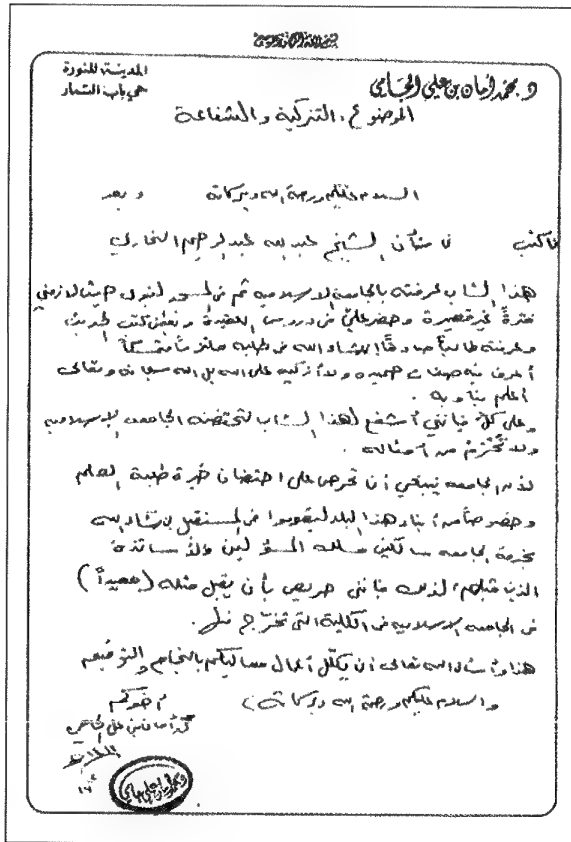 بسم الله الرحمن الرحيم
د. محمد أمان بن علي الجامي
المدينة المنورة
حي باب التمار
الموضوع: التزكية والشفاعة
السلام عليكم ورحمة الله وبركاته وبعد
فأكتب في شأن الشيخ عبد الله عبد الرحيم البخاري
هذا الشاب عرفته بالجامعة الإسلامية ثم في المسجد النبوي حيث لازمني
فترةً غير قصيرة وحضر عليّ في دروس العقيدة وبعض كتب الحديث
وعرفته طالباً صادقاً إن شاء الله في طلبه ملتزماً متمسكاً
أعرف فيه صفات حميدة ولا أزكيه على الله بل الله سبحانه وتعالى
أعلم بنا وبه.
وعلى كلٍّ فإنني أشفع لهذا الشاب لتحتضنه الجامعة الإسلامية
ولا تُحْرَمُ من أمثاله.
لأن الجامعة ينبغي أن تحرص على احتضان خيرة طلبة العلم
وخصوصاً من أبناء هذا البلد ليقوموا في المستقبل إن شاء الله
بخدمة الجامعة سالكين مسلك المسؤولين والأساتذة
الذين قبلهم، لذلك فإنني حريص بأن يقبل مثله (معيداً)
في الجامعة الإسلامية في الكلية التي تخرّج منها.
هذا وأسأل الله تعالى أن يكلل أعمال معاليكم بالنجاح والتوفيق
والسلام عليكم ورحمة الله وبركاته
أخوكم
محمد أمان بن علي الجامي